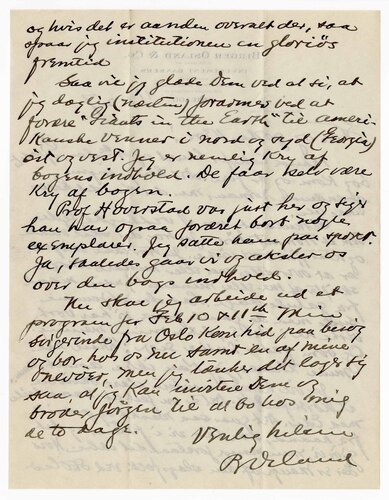 og hvis det er aanden overalt der, saa
spaar jeg institutionen en gloriøs
fremtid
Saa vil jeg glæde Dem ved at si, at
jeg daglig (næsten) fornøier ved at
forære "Giants in the Earth" til ameri-
kanske venner i nord og syd (Georgia)
öst og vest. Jeg er nemlig kry af
bogens indhold. De faar selv være
kry af bogen.
Prof Hoverstad var just her og siger
han har ogsaa foræret bort nogle
exemplarer. Jeg satte ham paa sporet.
Ja, saaledes gaar vi og
over den bogs indhold.
Nu skal jeg arbeide ud et
program for Feb 10 & 11th Min
svigerinde fra Oslo kom hid paa besøg
og bor hos os nu samt en af mine
onevöer, men jeg tænker det lager sig
saa, at jeg kan invitere Dem og
broder Jörgen til at bo hos mig
de to dage.
Venlig hilsen
B Osland
BIRGER OSLAND & CO.